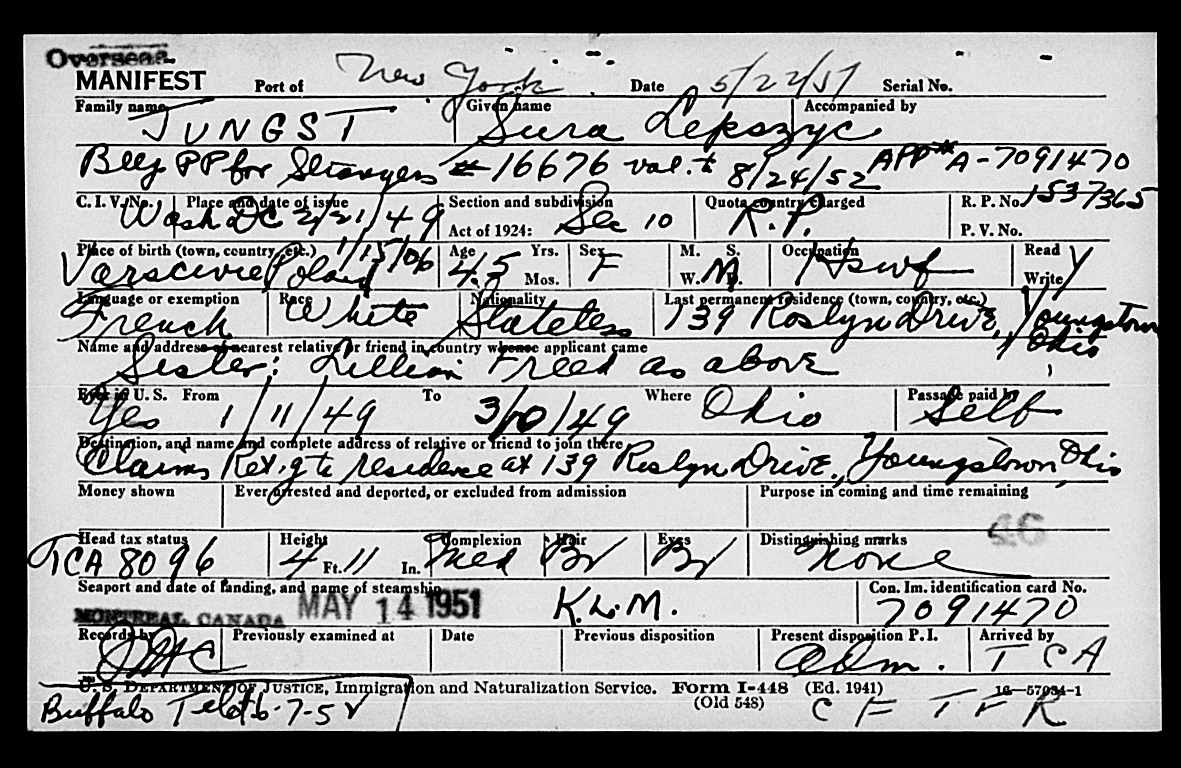 Overseas
MANIFEST Port of New York Date 5/22/51 Serial No.
Family name Given name Accompanied by
JUNGST Sura Lepszyc
Belg PP for Strangers # 16676 val. t 8/24/52 APP# A-7091470
C. I. V. No. Place and date of issue Section and subdivision Quota country charged R. P. No. 1537365
Wash DC 2/21/49 Act of 1924: Sec 10 R.P. P. V. No.
Place of birth (town, country, etc.) 1/15/06 Age Yrs. Sex M. S. Occupation Read
Poland 45 Mos. F W. M D. Hswf Write Y
Language or exemption Race Nationality Last permanent residence (town, country, etc.)
French White Stateless 139 Roslyn Drive, Youngstown Ohio
Name and address of nearest relative or friend in country whence applicant came
Sister: Lillian Freed as above
Ever in U. S. From To Where Passage paid by
Yes 1/11/49 3/10/49 Ohio Self
Destination, and name and complete address of relative or friend to join there
Claims Ret.g to residence at 139 Roslyn Drive, Youngstown, Ohio
Money shown Ever arrested and deported, or excluded from admission Purpose in coming and time remaining
46
Head tax status Height Complexion Hair Eyes Distinguishing marks
TCA 8096 4 Ft. 11 In. Med Br Br None
Seaport and date of landing, and name of steamship Con. Im. identification card No.
MONTREAL CANADA MAY 14 1951 K.L.M. 7091470
Record by Previously examined at Date Previous disposition Present disposition P. I. Arrived by
adm. TCA
U. S. DEPARTMENT OF JUSTICE, Immigration and Naturalization Service. Form I-448 (Ed. 1941) 16—57034-1
(Old 548)
Buffalo CFTFR